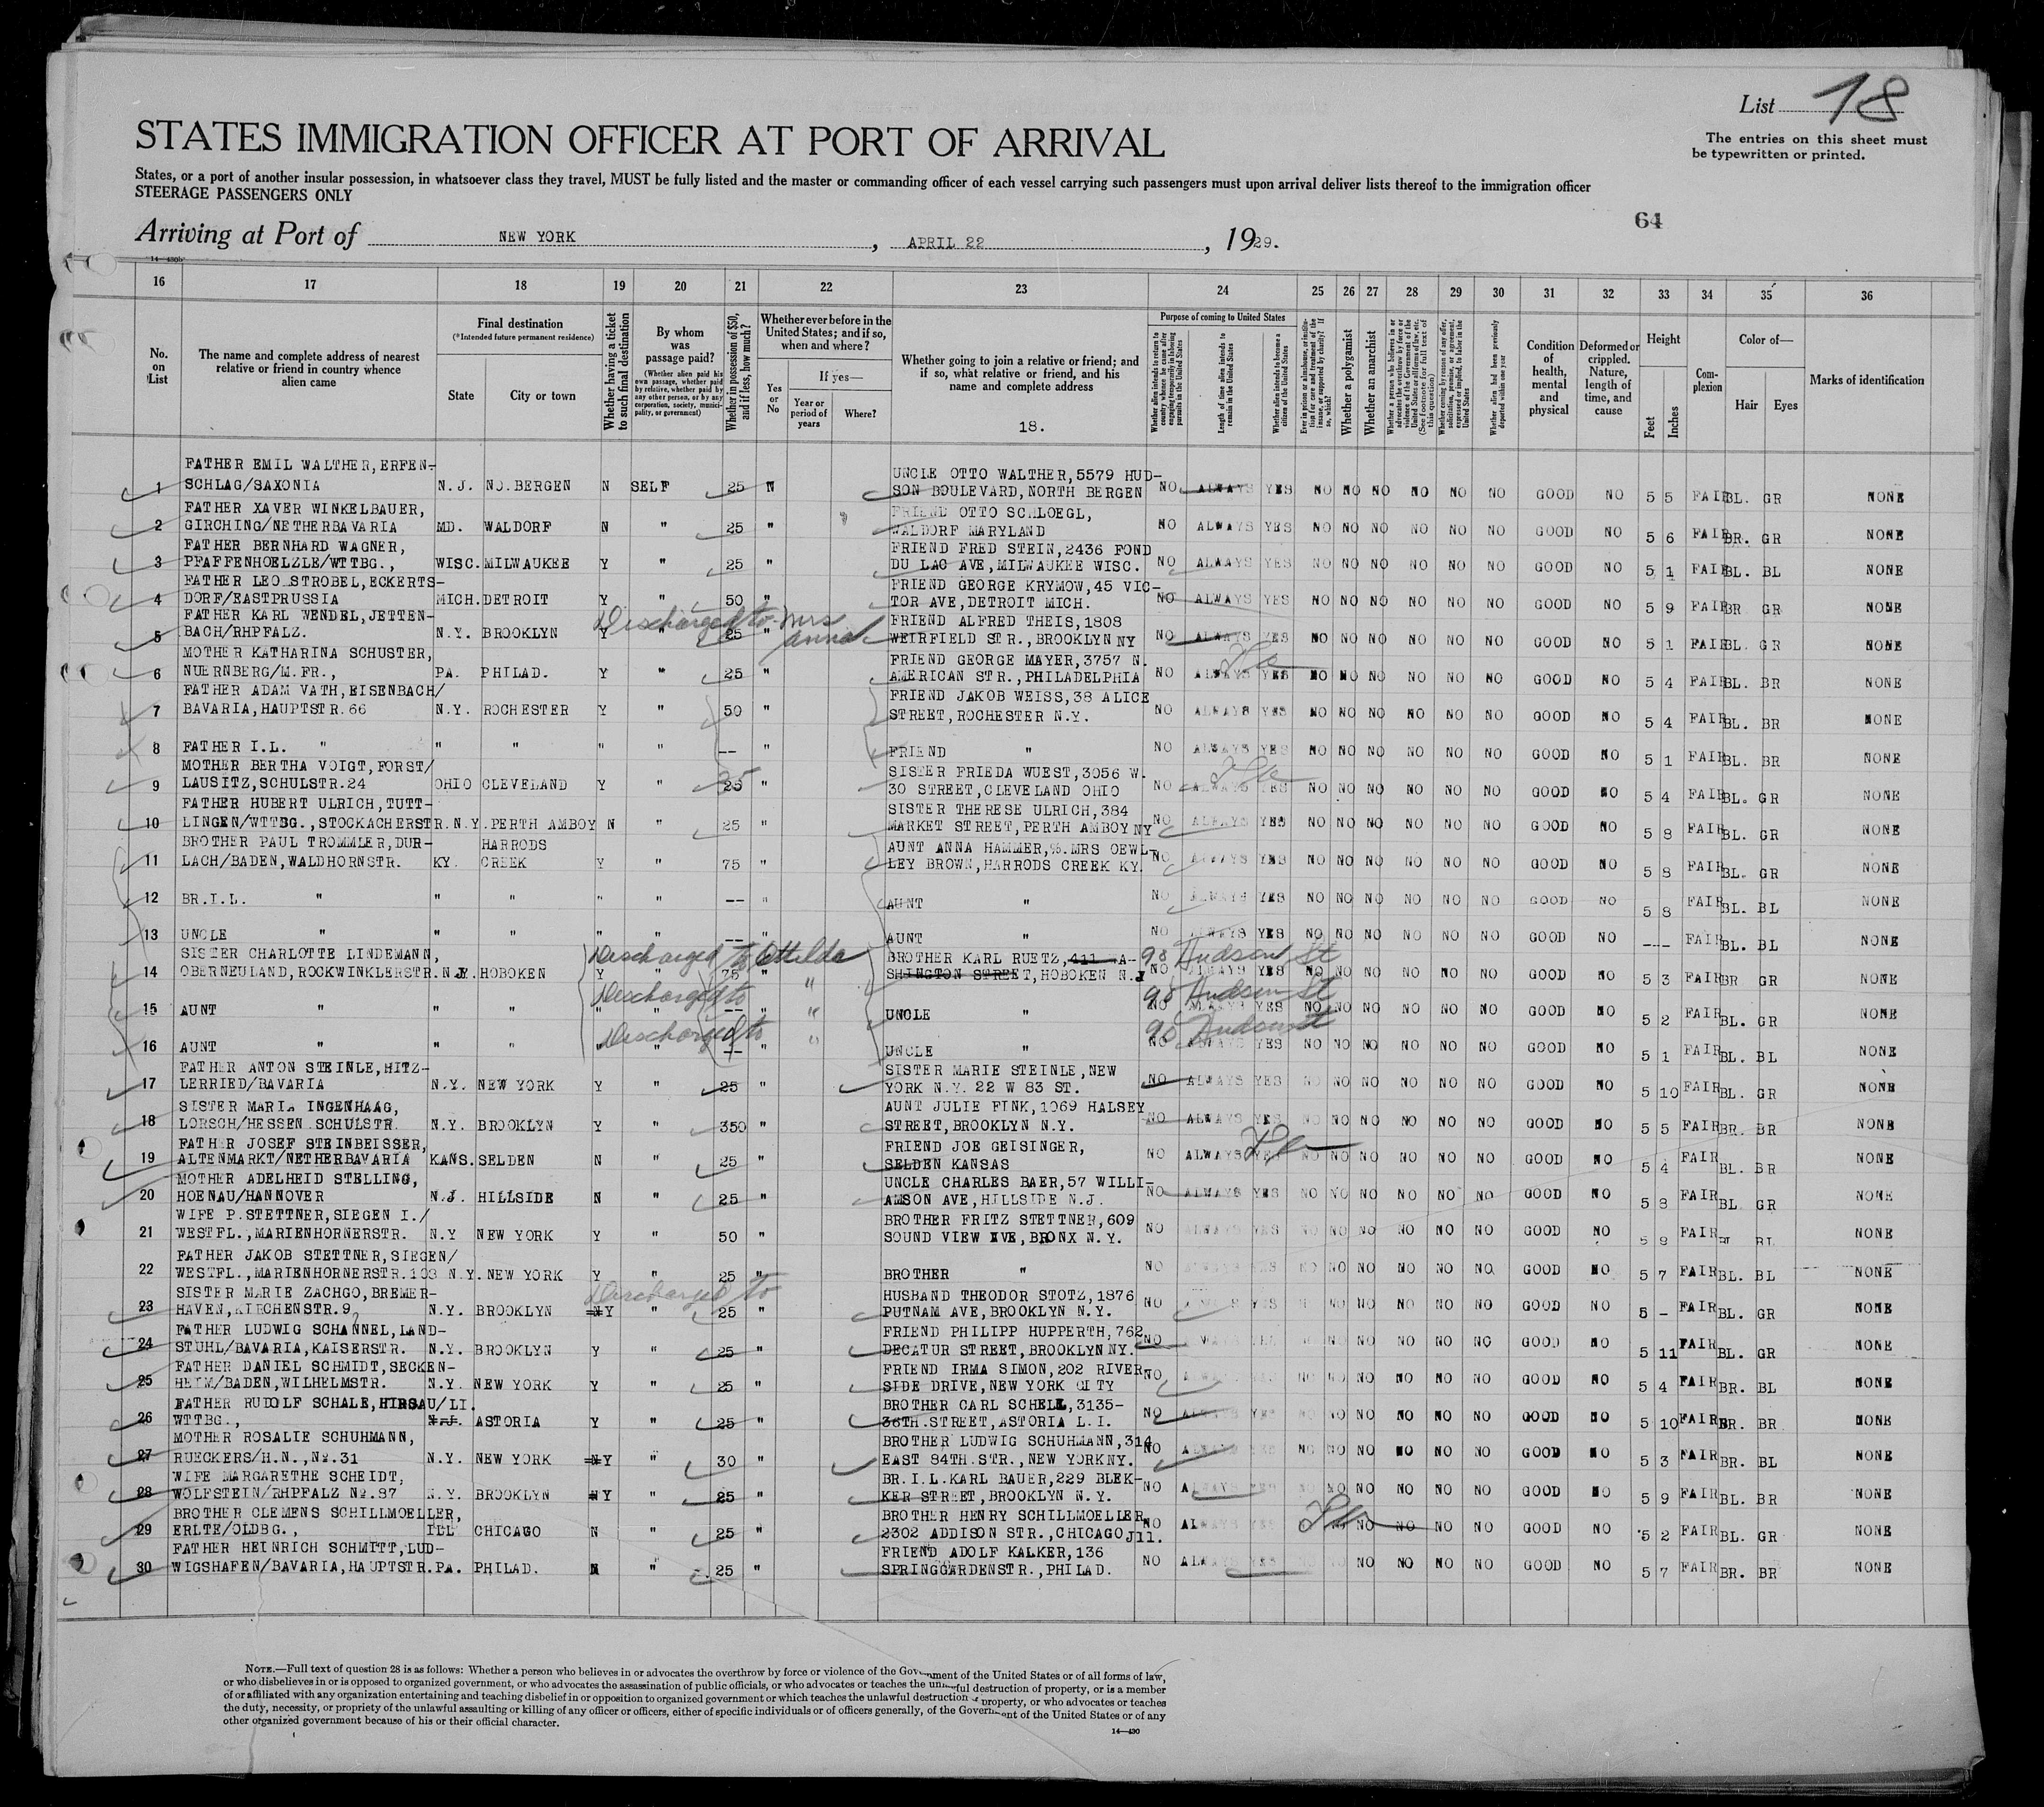 List 18
The entries on this sheet must
be typewritten or printed.
STATES IMMIGRATION OFFICER AT PORT OF ARRIVAL
States, or a port of another insular possession, in whatsoever class they travel, MUST be fully listed and the master or commanding officer of each vessel carrying such passengers must upon arrival deliver lists thereof to the immigration officer
STEERAGE PASSENGERS ONLY
64
Arriving at Port of NEW YORK, APRIL 22, 1929.
14—430b
16 17 18 19 20 21 22 23 24 25 26 27 28 29 30 31 32 33 34 35 36
No. on List
The name and complete address of nearest relative or friend in country whence alien came
Final destination (*Intended future permanent residence)
State
City or town
Whether having a ticket to such final destination
By whom was passage paid? (Whether alien paid his own passage, whether paid by relative, whether paid by any other person, or by any corporation, society, municipality, or government)
Whether in possession of $50, and if less, how much?
Whether ever before in the United States; and if so, when and where?
Yes or No
If yes—
Year or period of years
Where?
Whether going to join a relative or friend; and if so, what relative or friend, and his name and complete address
18.
Purpose of coming to United States
Whether alien intends to return to country whence he came after engaging temporarily in laboring pursuits in the United States
Length of time alien intends to remain in the United States
Whether alien intends to become a citizen of the United States
Whether a polygamist
Whether an anarchist
Whether alien had been previously deported within one year
Condition of health, mental and physical
Deformed or crippled. Nature, length of time, and cause
Height
Feet
Inches
Complexion
Color of—
Hair
Eyes
Marks of identification
FATHER EMIL WALTHER, ERFEN- UNCLE OTTO WALTHER, 5579 HUD-
1 SCHLAG/SAXONIA N.J. NO. BERGEN N SELF 25 N SON BOULEVARD, NORTH BERGEN NO ALWAYS YES NO NO NO NO NO NO GOOD NO 5 5 FAIR BL. GR NONE
FATHER XAVER WINKELBAUER, FRIEND OTTO SCHLOEGL,
2 GIRCHING/NETHERBAVARIA MD. WALDORF N " 25 " WALDORF MARYLAND NO ALWAYS YES NO NO NO NO NO NO GOOD NO 5 6 FAIR BR. GR NONE
FATHER BERNHARD WAGNER, FRIEND FRED STEIN, 2436 FOND
3 PFAFFENHOELZLE/WTTBG., WISC. MILWAUKEE Y " 25 " DU LAC AVE, MILWAUKEE WISC. NO ALWAYS YES NO NO NO NO NO NO GOOD NO 5 1 FAIR BL. BL NONE
FATHER LEO STROBEL, ECKERTS- FRIEND GEORGE KRYMOW, 45 VIC-
4 DORF/EASTPRUSSIA MICH. DETROIT Y " 50 " TOR AVE, DETROIT MICH. NO ALWAYS YES NO NO NO NO NO NO GOOD NO 5 9 FAIR BR GR NONE
FATHER KARL WENDEL, JETTEN- Discharged to Mrs Anna FRIEND ALFRED THEIS, 1808
5 BACH/RHPFALZ. N.Y. BROOKLYN Y " 25 " WEIRFIELD STR., BROOKLYN NY NO ALWAYS YES NO NO NO NO NO NO GOOD NO 5 1 FAIR BL. GR NONE
MOTHER KATHARINA SCHUSTER, FRIEND GEORGE MAYER, 3757 N.
6 NUERNBERG/M.FR., PA. PHILAD. Y " 25 " AMERICAN STR., PHILADELPHIA NO ALWAYS YES NO NO NO NO NO NO GOOD NO 5 4 FAIR BL. BR NONE
FATHER ADAM VATH, EISENBACH/ FRIEND JAKOB WEISS, 38 ALICE
7 BAVARIA, HAUPTSTR. 66 N.Y. ROCHESTER Y " 50 " STREET, ROCHESTER N.Y. NO ALWAYS YES NO NO NO NO NO NO GOOD NO 5 4 FAIR BL. BR NONE
8 FATHER I.L. " " " " " -- " FRIEND " NO ALWAYS YES NO NO NO NO NO NO GOOD NO 5 1 FAIR BL. BR NONE
MOTHER BERTHA VOIGT, FORST/ SISTER FRIEDA WUEST, 3056 W.
9 LAUSITZ, SCHULSTR. 24 OHIO CLEVELAND Y " 25 " 30 STREET, CLEVELAND OHIO NO ALWAYS YES NO NO NO NO NO NO GOOD NO 5 4 FAIR BL. GR NONE
FATHER HUBERT ULRICH, TUTT- SISTER THERESE ULRICH, 384
10 LINGEN/WTTBG., STOCKACHERSTR. N.Y. PERTH AMBOY N " 25 " MARKET STREET, PERTH AMBOY NY NO ALWAYS YES NO NO NO NO NO NO GOOD NO 5 8 FAIR BL. GR NONE
BROTHER PAUL TROMMLER, DUR- HARRODS AUNT ANNA HAMMER, %. MRS OEWL-
11 LACH/BADEN, WALDHORNSTR. KY. CREEK Y " 75 " LEY BROWN, HARRODS CREEK KY. NO ALWAYS YES NO NO NO NO NO NO GOOD NO 5 8 FAIR BL. GR NONE
12 BR. I.L. " " " " " -- " AUNT " NO ALWAYS YES NO NO NO NO NO NO GOOD NO 5 8 FAIR BL. BL NONE
13 UNCLE " " " " " -- " AUNT " NO ALWAYS YES NO NO NO NO NO NO GOOD NO --- FAIR BL. BL NONE
SISTER CHARLOTTE LINDEMANN, Discharged to Ottilda BROTHER KARL RUETZ, 411 WA- 98 Hudson St
14 OBERNEULAND, ROCKWINKLERSTR. N.J. HOBOKEN Y " 75 " SHINGTON STREET, HOBOKEN N.J NO ALWAYS YES NO NO NO NO NO NO GOOD NO 5 3 FAIR BR GR NONE
Discharged to " 98 Hudson St
15 AUNT " " " " " -- " UNCLE " NO ALWAYS YES NO NO NO NO NO NO GOOD NO 5 2 FAIR BL. GR NONE
Discharged to " 98 Hudson St
16 AUNT " " " " " -- " UNCLE " NO ALWAYS YES NO NO NO NO NO NO GOOD NO 5 1 FAIR BL. BL NONE
FATHER ANTON STEINLE, HITZ- SISTER MARIE STEINLE, NEW
17 LERRIED/BAVARIA N.Y. NEW YORK Y " 25 " YORK N.Y. 22 W 83 ST. NO ALWAYS YES NO NO NO NO NO NO GOOD NO 5 10 FAIR BL. GR NONE
SISTER MARIA INGENHAAG, AUNT JULIE FINK, 1069 HALSEY
18 LORSCH/HESSEN. SCHULSTR. N.Y. BROOKLYN Y " 350 " STREET, BROOKLYN N.Y. NO ALWAYS YES NO NO NO NO NO NO GOOD NO 5 5 FAIR BR. BR NONE
FATHER JOSEF STEINBEISSER, FRIEND JOE GEISINGER,
19 ALTENMARKT/NETHERBAVARIA KANS. SELDEN N " 25 " SELDEN KANSAS NO ALWAYS YES NO NO NO NO NO NO GOOD NO 5 4 FAIR BL. BR NONE
MOTHER ADELHEID STELLING, UNCLE CHARLES BAER, 57 WILLI-
20 HOENAU/HANNOVER N.J. HILLSIDE N " 25 " AMSON AVE, HILLSIDE N.J. NO ALWAYS YES NO NO NO NO NO NO GOOD NO 5 8 FAIR BL GR NONE
WIFE P. STETTNER, SIEGEN I./ BROTHER FRITZ STETTNER, 609
21 WESTFL., MARIENHORNERSTR. N.Y NEW YORK Y " 50 " SOUND VIEW AVE, BRONX N.Y. NO ALWAYS YES NO NO NO NO NO NO GOOD NO FAIR BL BL NONE
FATHER JAKOB STETTNER, SIEGEN/
22 WESTFL., MARIENHORNERSTR. 103 N.Y. NEW YORK Y " 25 " BROTHER " NO ALWAYS YES NO NO NO NO NO NO GOOD NO 5 7 FAIR BL. BL NONE
SISTER MARIE ZACHGO, BREMER- Discharged to HUSBAND THEODOR STOTZ, 1876
23 HAVEN, KIRCHENSTR. 9 N.Y. BROOKLYN N Y " 25 " PUTNAM AVE, BROOKLYN N.Y. NO ALWAYS YES NO NO NO NO NO NO GOOD NO 5 - FAIR BL. GR NONE
FATHER LUDWIG SCHANNEL, LAND- FRIEND PHILIPP HUPPERTH, 762
24 STUHL/BAVARIA, KAISERSTR. N.Y. BROOKLYN Y " 25 " DECATUR STREET, BROOKLYN NY. NO ALWAYS YES NO NO NO NO NO NO GOOD NO 5 11 FAIR BL. GR NONE
FATHER DANIEL SCHMIDT, SECKEN- FRIEND IRMA SIMON, 202 RIVER-
25 HEIM/BADEN, WILHELMSTR. N.Y. NEW YORK Y " 25 " SIDE DRIVE, NEW YORK CITY NO ALWAYS YES NO NO NO NO NO NO GOOD NO 5 4 FAIR BR. BL NONE
FATHER RUDOLF SCHALE, HIRSAU/ LI. BROTHER CARL SCHELL, 3135-
26 WTTBG., ASTORIA Y " 25 " 36TH. STREET, ASTORIA L.I. NO ALWAYS YES NO NO NO NO NO NO GOOD NO 5 10 FAIR BR. BR NONE
MOTHER ROSALIE SCHUHMANN, BROTHER LUDWIG SCHUHMANN, 314
27 RUECKERS/H.N., No. 31 N.Y. NEW YORK N Y " 30 " EAST 84TH. STR., NEW YORK NY. NO ALWAYS YES NO NO NO NO NO NO GOOD NO 5 3 FAIR BR. BL NONE
WIFE MARGARETHE SCHEIDT, BR. I.L. KARL BAUER, 229 BLEK-
28 WOLFSTEIN/RHPFALZ No. 87 N.Y. BROOKLYN N Y " 25 " KER STREET, BROOKLYN N.Y. NO ALWAYS YES NO NO NO NO NO NO GOOD NO 5 9 FAIR BL. BR NONE
BROTHER CLEMENS SCHILLMOELLER, BROTHER HENRY SCHILLMOELLER
29 ERLTE/OLDBG., ILL CHICAGO N " 25 " 2302 ADDISON STR., CHICAGO Jll. NO ALWAYS YES NO NO NO NO NO GOOD NO 5 2 FAIR BL. GR NONE
FATHER HEINRICH SCHMITT, LUD- FRIEND ADOLF KALKER, 136
30 WIGSHAFEN/BAVARIA, HAUPTSTR. PA. PHILAD. N " 25 " SPRINGGARDENSTR., PHILAD. NO ALWAYS YES NO NO NO NO GOOD NO 5 7 FAIR BR. BR NONE
NOTE.—Full text of question 28 is as follows: Whether a person who believes in or advocates the overthrow by force or violence of the Government of the United States or of all forms of law,
or who disbelieves in or is opposed to organized government, or who advocates the assassination of public officials, or who advocates or teaches the unlawful destruction of property, or is a member
of or affiliated with any organization entertaining and teaching disbelief in or opposition to organized government or which teaches the unlawful destruction of property, or who advocates or teaches
the duty, necessity, or propriety of the unlawful assaulting or killing of any officer or officers, either of specific individuals or of officers generally, of the Government of the United States or of any
other organized government because of his or their official character.
14—430